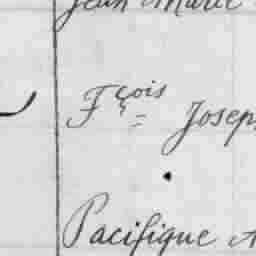 Jean Marie
Fçois Josep
Pacifique A